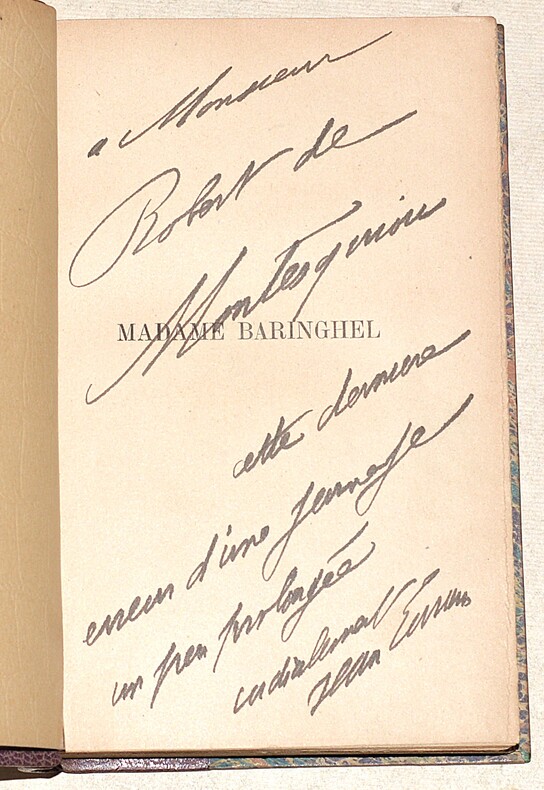 a Monsieur
Robert de
Montesquiou
MADAME BARINGHEL
cette derniere
erreur d'une jeunesse
un peu prolongée
cordialement
Jean Lorrain